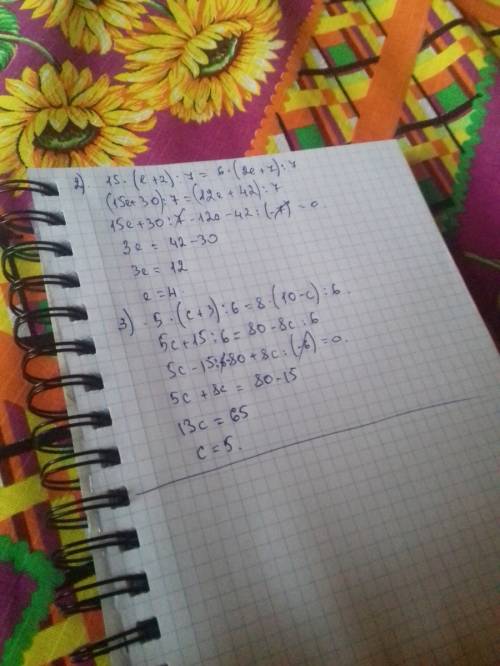 2). 15 · (e+2) : 7 = 6 · (2e+7) : 7
(15e+30) : 7 = (12e + 42) : 7
15e + 30 : 7 - 12e - 42 : (-7) = 0
3e = 42 - 30
3e = 12
e = 4.
3) · 5 · (c+3) : 6 = 8 · (10-c) : 6.
5c + 15 : 6 = 80 - 8c : 6
5c - 15 : 6 - 80 + 8c : (-6) = 0.
5c + 8c = 80 - 15
13c = 65
c = 5.